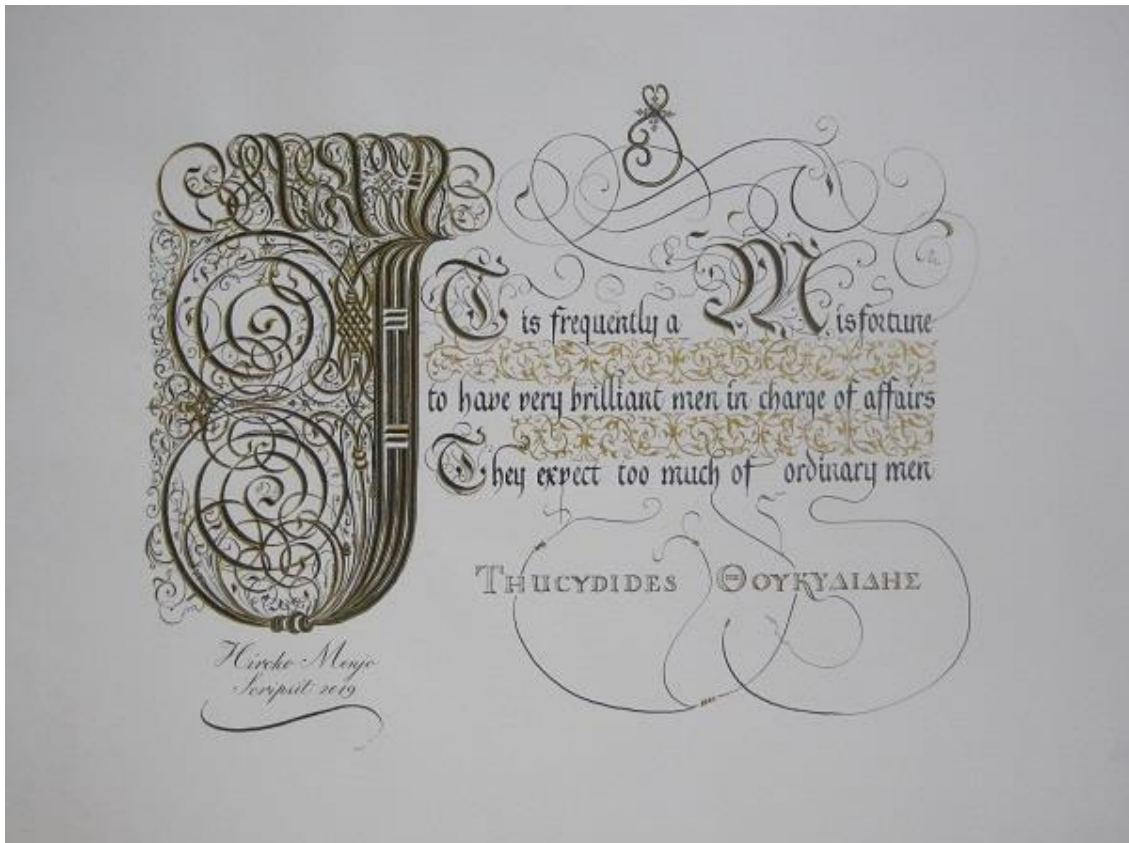 IT is frequently a Misfortune
to have very brilliant men in charge of affairs
They expect too much of ordinary men
THUCYDIDES ΘΟΥΚΥΔΙΔΗΣ
Hiroko Menjo
Scripsit 2019